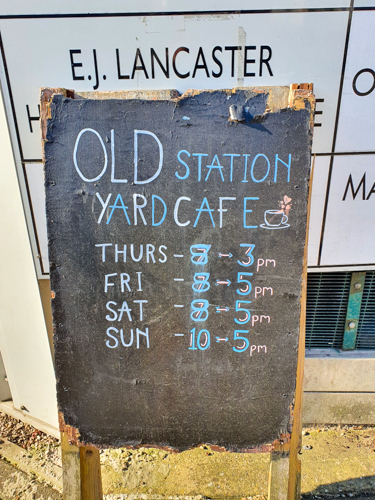 E.J. LANCASTER
OLD STATION
YARD CAFE
THURS - 8 - 3pm
FRI - 8 - 5pm
SAT - 8 - 5pm
SUN - 10 - 5pm
O
MA